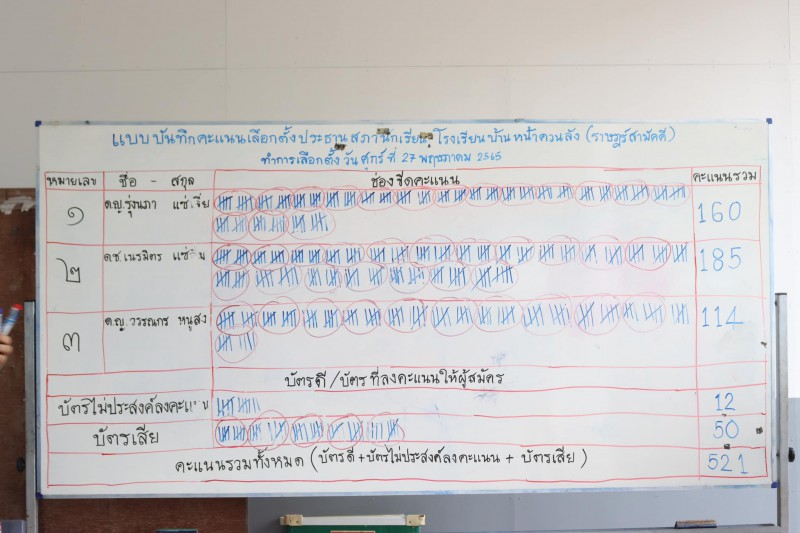 แบบบันทึกคะแนนเลือกตั้งประธานสภานักเรียน โรงเรียนบ้านหน้าควนลัง (ราษฎร์สามัคคี)
ทำการเลือกตั้ง วันศุกร์ ที่ 27 พฤษภาคม 2565
หมายเลข ชื่อ - สกุล ช่องขีดคะแนน คะแนนรวม
๑ ด.ญ.รุ่งนภา 160
๒ ด.ช.เนรมิตร 185
๓ ด.ญ.วรรณกร หนูสง 114
บัตรดี/บัตรที่ลงคะแนนให้ผู้สมัคร
บัตรไม่ประสงค์ลงคะแนน 12
บัตรเสีย 50
คะแนนรวมทั้งหมด (บัตรดี+บัตรไม่ประสงค์ลงคะแนน + บัตรเสีย) 521